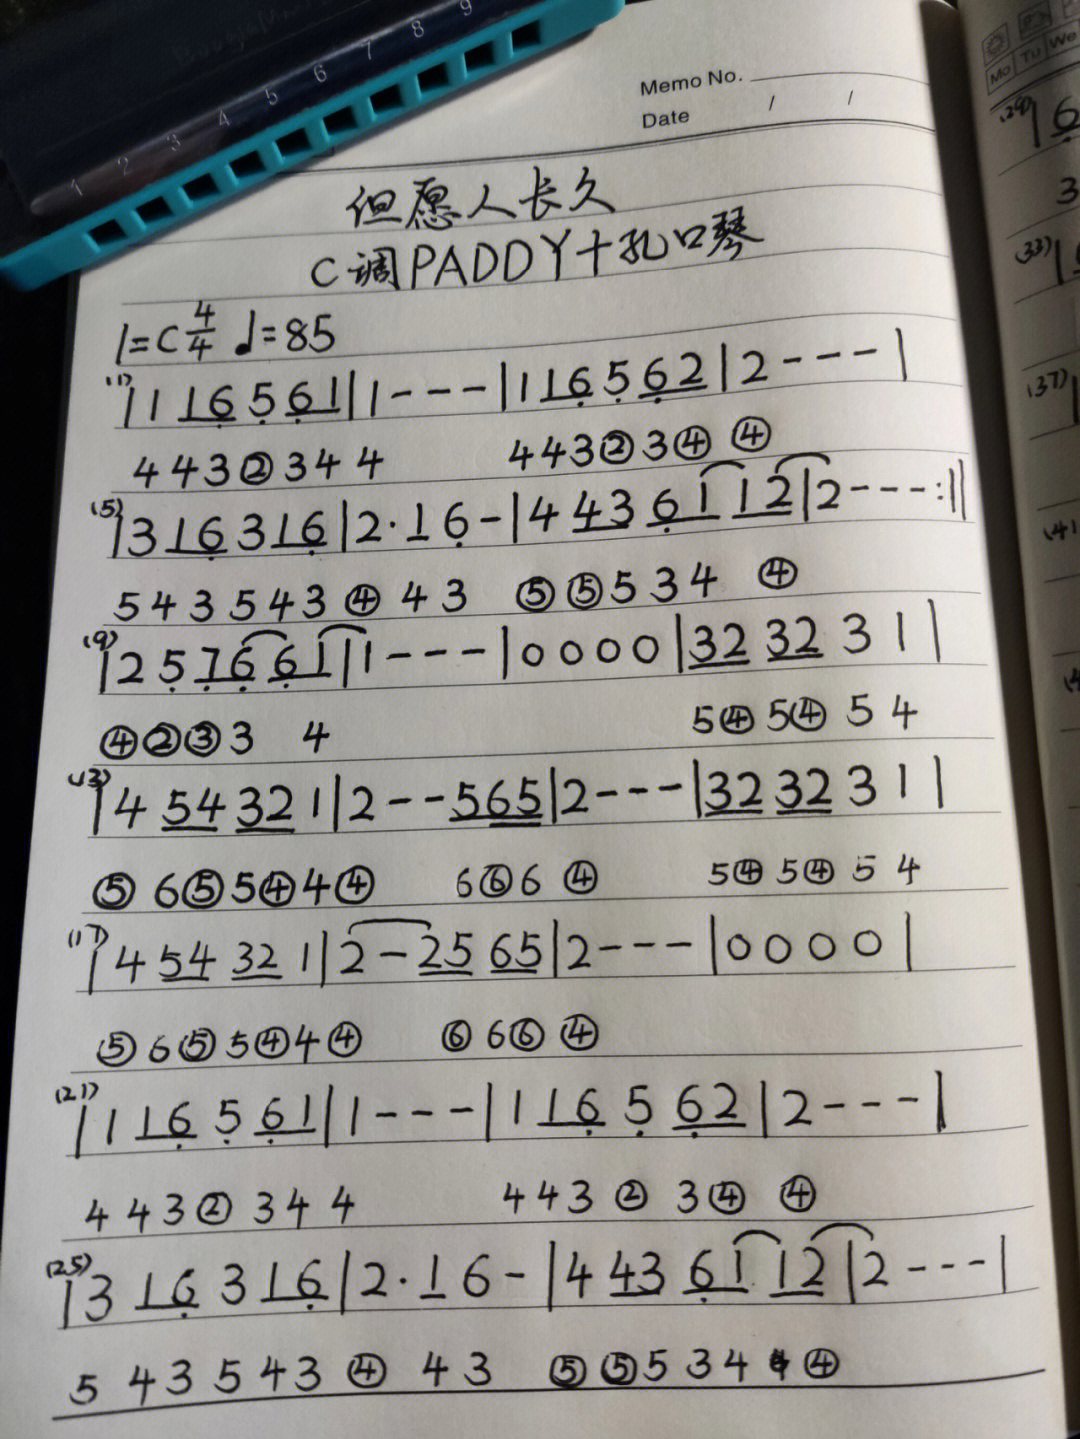 1 2 3 4 5 6 7 8 9
Memo No.
Date / /
但愿人长久
C调PADDY十孔口琴
1=C 4/4 ♩=85
(1) | 1 1 6 5 6 1 | 1 - - - | 1 1 6 5 6 2 | 2 - - - |
4 4 3 ② 3 4 4 4 4 3 ② 3 ④ ④
(5) | 3 1 6 3 1 6 | 2 · 1 6 - | 4 4 3 6 1 1 2 | 2 - - - :||
5 4 3 5 4 3 ④ 4 3 ⑤ ⑤ 5 3 4 ④
(9) | 2 5 7 6 6 1 | 1 - - - | 0 0 0 0 | 3 2 3 2 3 1 |
④ ② ③ 3 4 5 ④ 5 ④ 5 4
(13) | 4 5 4 3 2 1 | 2 - - 5 6 5 | 2 - - - | 3 2 3 2 3 1 |
⑤ 6 ⑤ 5 ④ 4 ④ 6 ⑥ 6 ④ 5 ④ 5 ④ 5 4
(17) | 4 5 4 3 2 1 | 2 - 2 5 6 5 | 2 - - - | 0 0 0 0 |
⑤ 6 ⑤ 5 ④ 4 ④ ⑥ 6 ⑥ ④
(21) | 1 1 6 5 6 1 | 1 - - - | 1 1 6 5 6 2 | 2 - - - |
4 4 3 ② 3 4 4 4 4 3 ② 3 ④ ④
(25) | 3 1 6 3 1 6 | 2 · 1 6 - | 4 4 3 6 1 1 2 | 2 - - - |
5 4 3 5 4 3 ④ 4 3 ⑤ ⑤ 5 3 4 ④
Mo Tu We
(29) | 6
3
(33) |
(37) |
(41